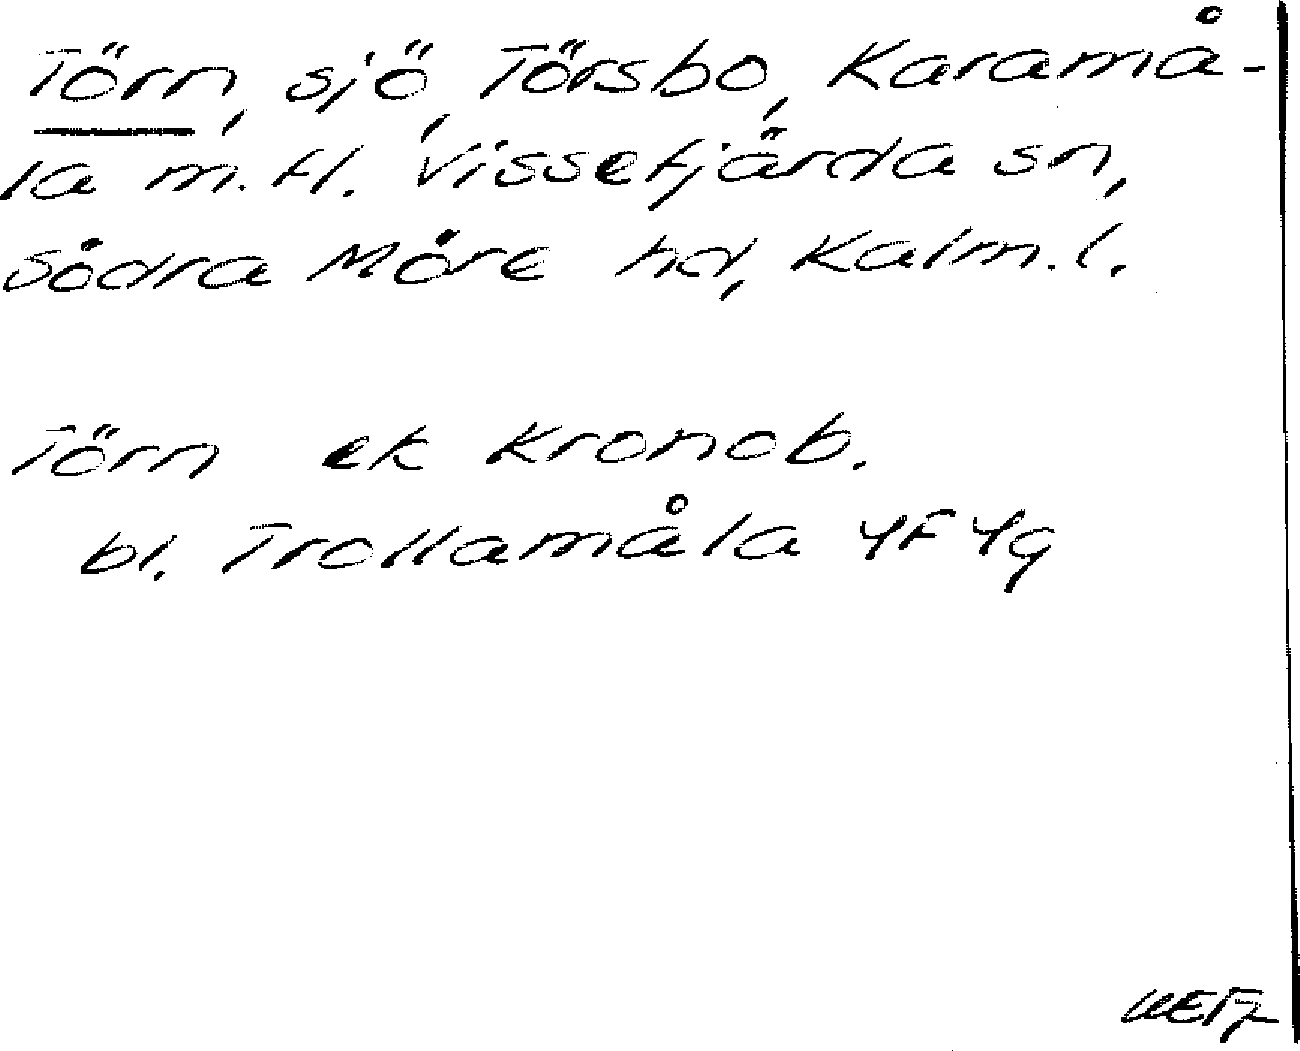 Törn, sjö, Törsbo, Karamå-
la m.fl. Vissefjärda sn,
Södra Möre hd, Kalm.l.
Törn ek Kronob.
bl. Trollamåla 4F4g